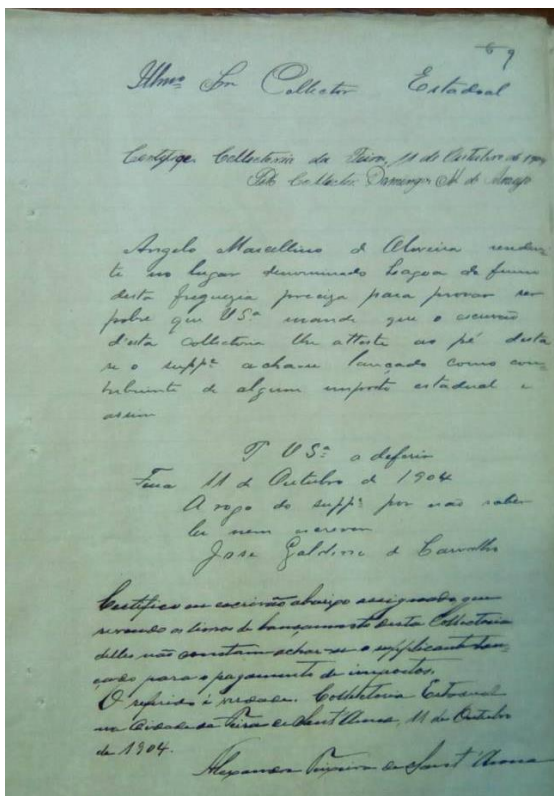 9
Illmo Snr Collector Estadual
Certifique. Collectoria da Feira, 11 de Outubro de 1904
Collector Domingos de Araujo
Angelo Marcellino de Oliveira residen-
te no lugar denominado Lagoa do
desta freguezia preciza para provar ser
pobre que VSª mande que o escrivão
d'esta collectoria lhe atteste ao pé desta
se o suppe achase lançado como con-
tribuinte de algum imposto estadual e
assim
P VSª o deferir
Feira 11 de Outubro de 1904
A rogo do suppe por não saber
ler nem escrever
José Galdino de Carvalho
Certifico eu escrivão abaixo assignado que
revendo os livros de lançamento desta Collectoria
delles não constam achar-se o supplicante lan-
çado para o pagamento de impostos.
O referido é verdade. Collectoria Estadual
na Cidade da Feira de Sant'Anna, 11 de Outubro
de 1904.
Alexandre Teixeira de Sant'Anna